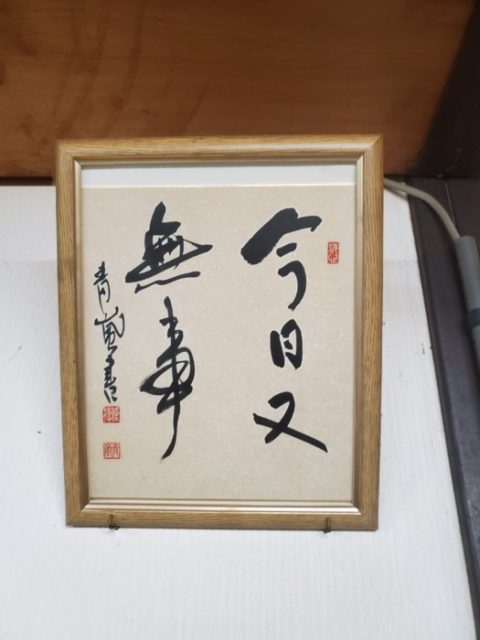 今日又
無事
青嵐書